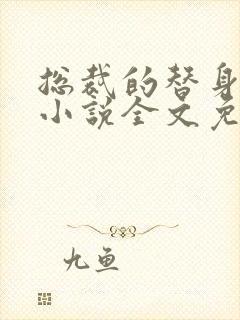 总裁的替身
小说全文免
九鱼